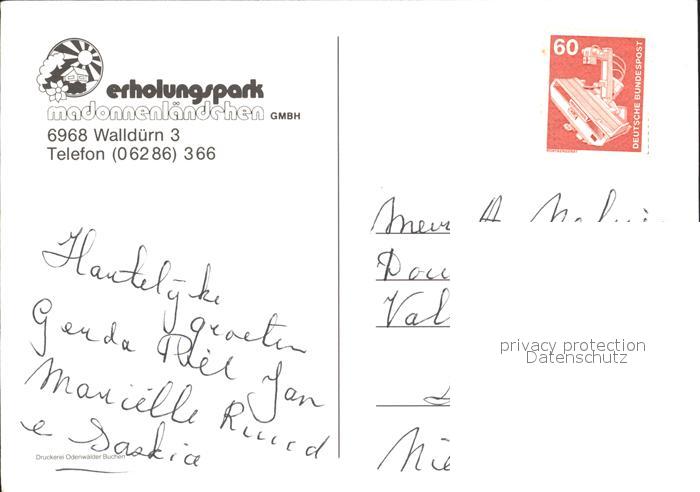 erholungspark
madonnenländchen GMBH
6968 Walldürn 3
Telefon (06286) 366
60
DEUTSCHE BUNDESPOST
RÖNTGENGERÄT
Hartelijke
groeten
Gerda Piet Jan
Mariëlle Ruud
e Saskia
Druckerei Odenwälder Buchen
Val
privacy protection
Datenschutz